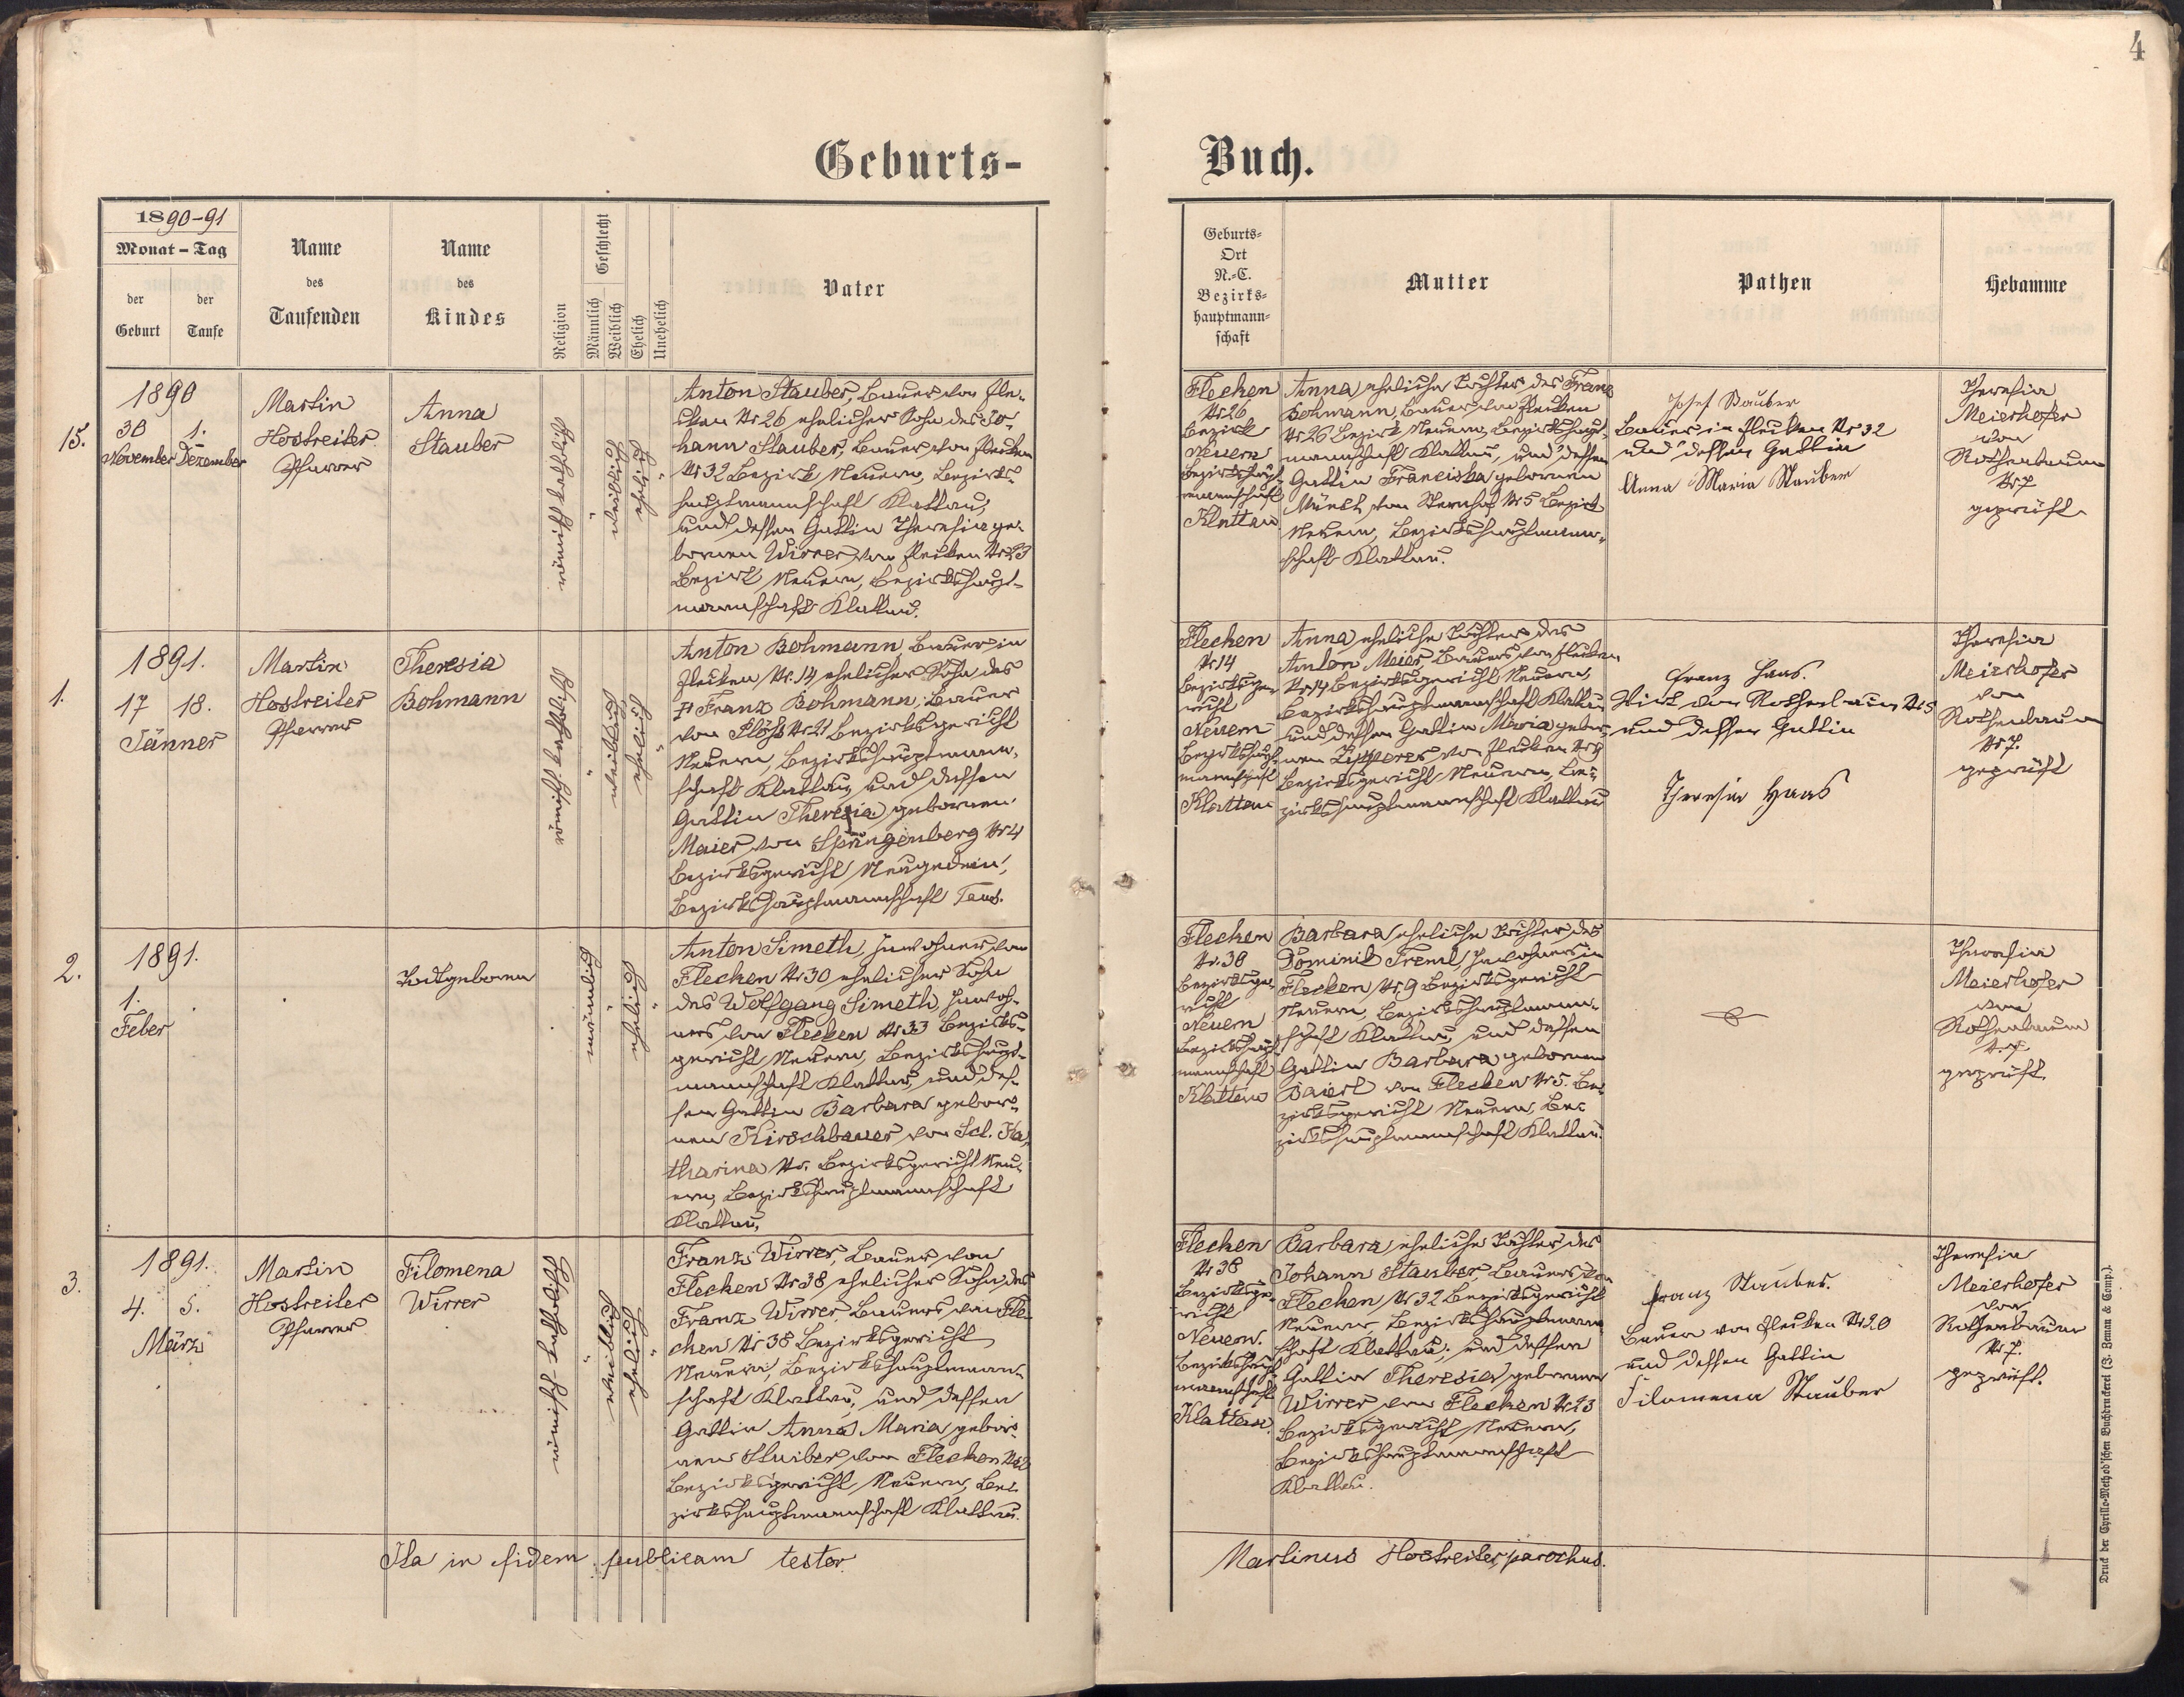 4
Geburts-
Buch.
1890-91
Monat - Tag
der
Geburt
der
Taufe
Name
des
Taufenden
Name
des
Kindes
Religion
Geschlecht
Männlich
Weiblich
Ehelich
Unehelich
Vater
Geburts-
Ort
N.-C.
Bezirks-
hauptmann-
schaft
Mutter
Pathen
Hebamme
15.
1890
30 1.
November Dezember
Martin
Hostreiter
Pfarrer
Anna
Stauber
römisch katholisch
weiblich
ehelich
Anton Stauber, Bauer von Fle-
cken Nr 26 ehelicher Sohn des Jo-
hann Stauber, Bauer von Flecken
Nr 32 Bezirk Neuern, Bezirks-
hauptmannschaft Klattau,
und dessen Gattin Theresia ge-
bornen Wirrer von Flecken Nr 23
Bezirk Neuern, Bezirkshaupt-
mannschaft Klattau.
Flecken
Nr 26
Bezirk
Neuern
Bezirkshaupt-
mannschaft
Klattau
Anna eheliche Tochter des Franz
Bohmann, Bauer von Flecken
Nr 26 Bezirk Neuern, Bezirkshaupt-
mannschaft Klattau, und dessen
Gattin Franciska gebornen
von Sternhof Nr 5 Bezirk
Neuern, Bezirkshauptmann-
schaft Klattau.
Josef Stauber
Bauer in Flecken Nr 32
und dessen Gattin
Anna Maria Stauber
Theresia
Meierhofer
von
Rothenbaum
Nr 7
geprüft
1.
1891.
17 18.
Jänner
Martin
Hostreiter
Pfarrer
Theresia
Bohmann
römisch katholisch
weiblich
ehelich
Anton Bohmann, Bauer in
Flecken Nr. 14 ehelicher Sohn des
Franz Bohmann, Bauer
von Flöhs Nr 21 Bezirksgericht
Neuern, Bezirkshauptmann-
schaft Klattau, und dessen
Gattin Theresia gebornen
Maier von Springenberg Nr 4
Bezirksgericht Neugedein,
Bezirkshauptmannschaft Taus.
Flecken
Nr 14
Bezirksge-
richt
Neuern
Bezirkshaupt-
mannschaft
Klattau
Anna eheliche Tochter des
Anton Meier, Bauers von Flecken
Nr 14 Bezirksgericht Neuern,
Bezirkshauptmannschaft Klattau
und dessen Gattin Maria gebor-
nen von Flecken Nr 9
Bezirksgericht Neuern, Be-
zirkshauptmannschaft Klattau
Franz Haas.
Wirt von Rothenbaum Nr 5
und dessen Gattin
Theresia Haas
Theresia
Meierhofer
von
Rothenbaum
Nr 7.
geprüft
2.
1891.
1.
Feber
Todtgeboren
männlich
ehelich
Anton Simeth, Inwohner von
Flecken Nr 30 ehelicher Sohn
des Wolfgang Simeth, Inwoh-
ners von Flecken Nr 33 Bezirks-
gericht Neuern, Bezirkshaupt-
mannschaft Klattau, und des-
sen Gattin Barbara gebor-
nen Kirschbauer von Sct. Ka-
tharina Nr. Bezirksgericht Neu-
ern, Bezirkshauptmannschaft
Klattau.
Flecken
Nr. 30
Bezirksge-
richt
Neuern
Bezirkshaupt-
mannschaft
Klattau
Barbara eheliche Tochter des
Dominik Treml, Inwohners in
Flecken Nr. 9 Bezirksgericht
Neuern, Bezirkshauptmann-
schaft Klattau, und dessen
Gattin Barbara gebornen
Baierl von Flecken Nr 5. Be-
zirksgericht Neuern, Be-
zirkshauptmannschaft Klattau.
Theresia
Meierhofer
von
Rothenbaum
Nr. 7.
geprüft.
3.
1891.
4. 5.
März
Martin
Hostreiter
Pfarrer
Filomena
Wirrer
römisch-katholisch
weiblich
ehelich
Franz Wirrer, Bauer von
Flecken Nr 38 ehelicher Sohn des
Franz Wirrer, Bauers von Fle-
cken Nr 38 Bezirksgericht
Neuern, Bezirkshauptmann-
schaft Klattau, und dessen
Gattin Anna Maria gebor-
nen Stuiber von Flecken Nr 2
Bezirksgericht Neuern, Be-
zirkshauptmannschaft Klattau.
Flecken
Nr 38
Bezirksge-
richt
Neuern.
Bezirkshaupt-
mannschaft
Klattau.
Barbara eheliche Tochter des
Johann Stauber, Bauers von
Flecken Nr 32 Bezirksgericht
Neuern Bezirkshauptmann-
schaft Klattau, und dessen
Gattin Theresia gebornen
Wirrer von Flecken Nr 23
Bezirksgericht Neuern,
Bezirkshauptmannschaft
Klattau.
Franz Stauber.
Bauer von Flecken Nr 20
und dessen Gattin
Filomena Stauber
Theresia
Meierhofer
von
Rothenbaum
Nr 7.
geprüft.
Ita in fidem publicam testor.
Martinus Hostreiter, parochus.
Druck der Cyrillo-Method'schen Buchdruckerei (J. Zeman & Comp.).